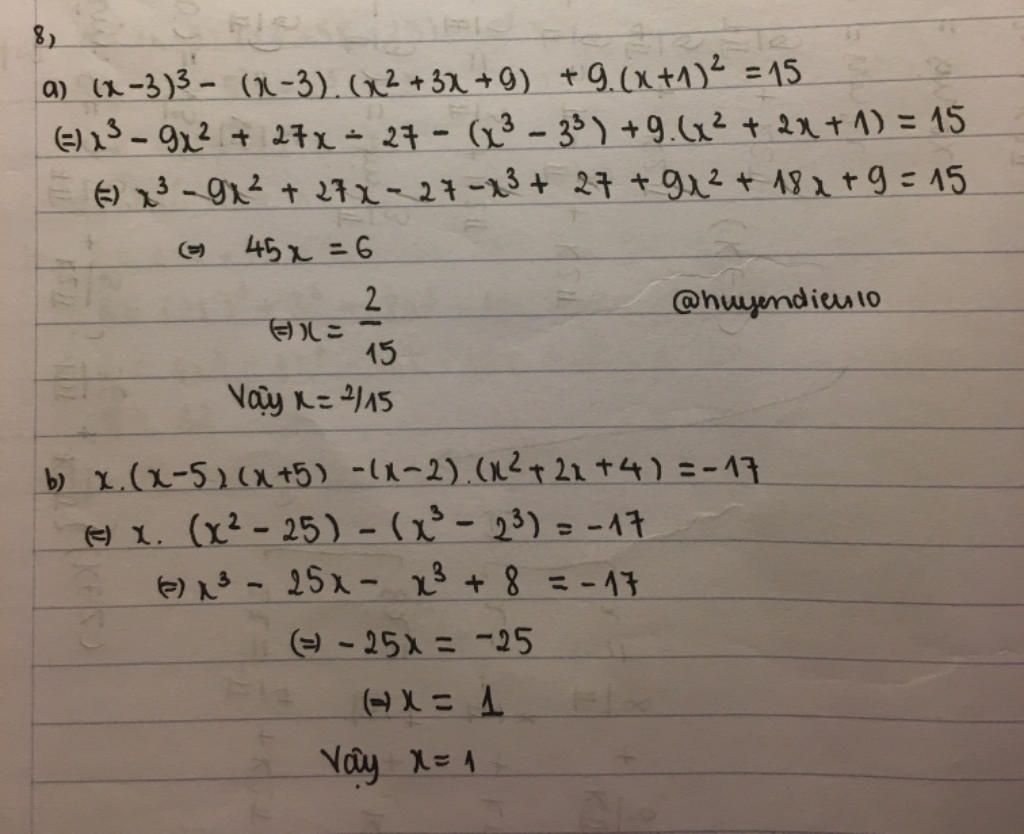 8,
a) (x-3)³ - (x-3).(x²+3x+9) + 9.(x+1)² = 15
(=) x³ - 9x² + 27x - 27 - (x³ - 3³) + 9.(x² + 2x + 1) = 15
(=) x³ - 9x² + 27x - 27 - x³ + 27 + 9x² + 18x + 9 = 15
(=) 45x = 6
(=) x = 2/15
@huyendieu10
Vậy x = 2/15
b) x.(x-5)(x+5) - (x-2).(x²+2x+4) = -17
(=) x. (x² - 25) - (x³ - 2³) = -17
(=) x³ - 25x - x³ + 8 = -17
(=) - 25x = -25
(=) x = 1
Vậy x = 1